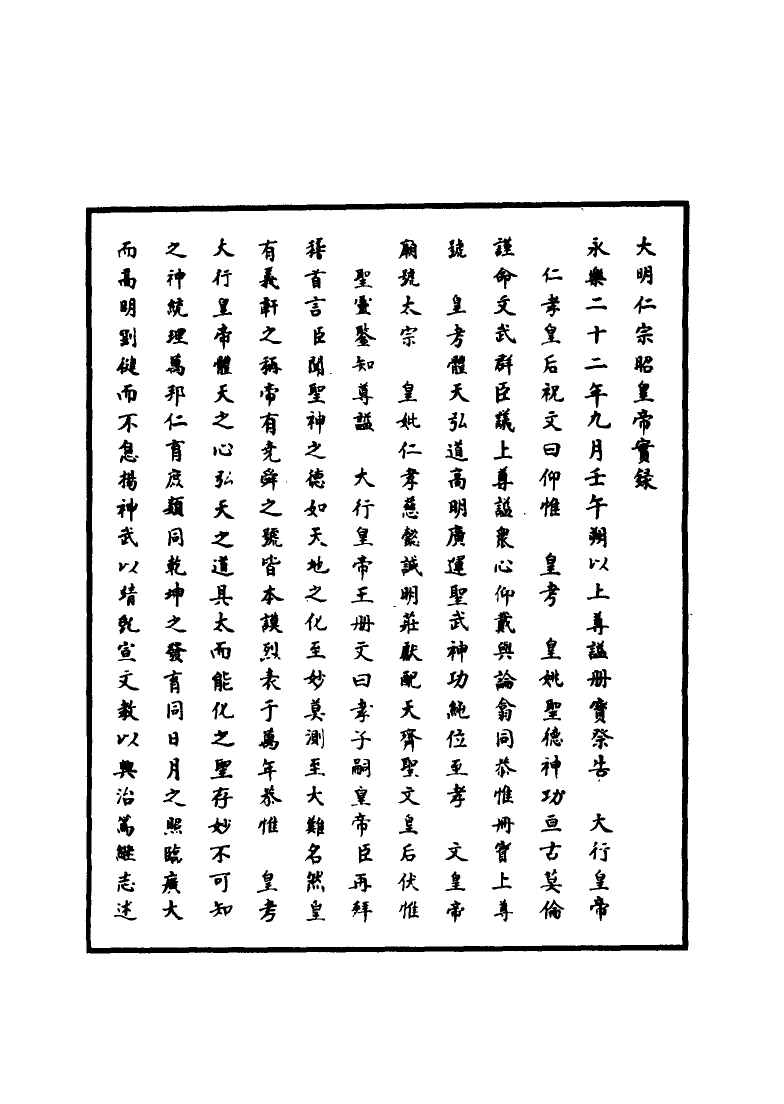 大明仁宗昭皇帝實録
永樂二十二年九月壬午朔以上尊謚册寶祭告　大行皇帝
仁孝皇后祝文曰仰惟　皇考　皇妣聖德神功亘古莫倫
謹命文武群臣議上尊謚衆心仰戴輿論翕同恭惟册寶上尊
號　皇考體天弘道高明廣運聖武神功純仁至孝　文皇帝
廟號太宗　皇妣仁孝慈懿誠明莊獻配天齊聖文皇后伏惟
聖靈鑒知尊謚　大行皇帝玉册文曰孝子嗣皇帝臣再拜
稽首言臣聞聖神之德如天地之化至妙莫測至大難名然皇
有羲軒之稱帝有堯舜之號皆本謨烈表于萬年恭惟　皇考
大行皇帝體天之心弘天之道具大而能化之聖存妙不可知
之神統理萬邦仁育庶類同乾坤之發育同日月之照臨廣大
而高明剛健而不息揚神武以靖亂宣文教以興治篤繼志述